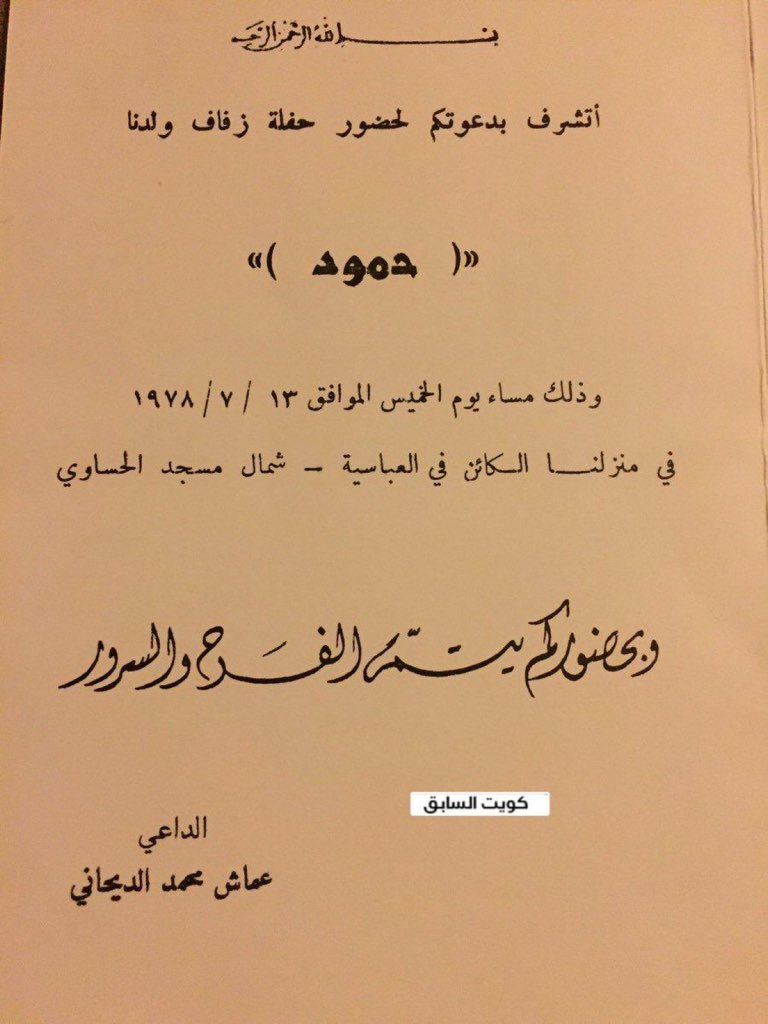 بسم الله الرحمن الرحيم
أتشرف بدعوتكم لحضور حفلة زفاف ولدنا
«( حمود )»
وذلك مساء يوم الخميس الموافق ١٣ / ٧ / ١٩٧٨
في منزلنــا الكائن في العباسية – شمال مسجد الحساوي
وبحضوركم يتمّ الفَرح والسرور
كويت السابق
الداعي
عماش محمد الديحاني